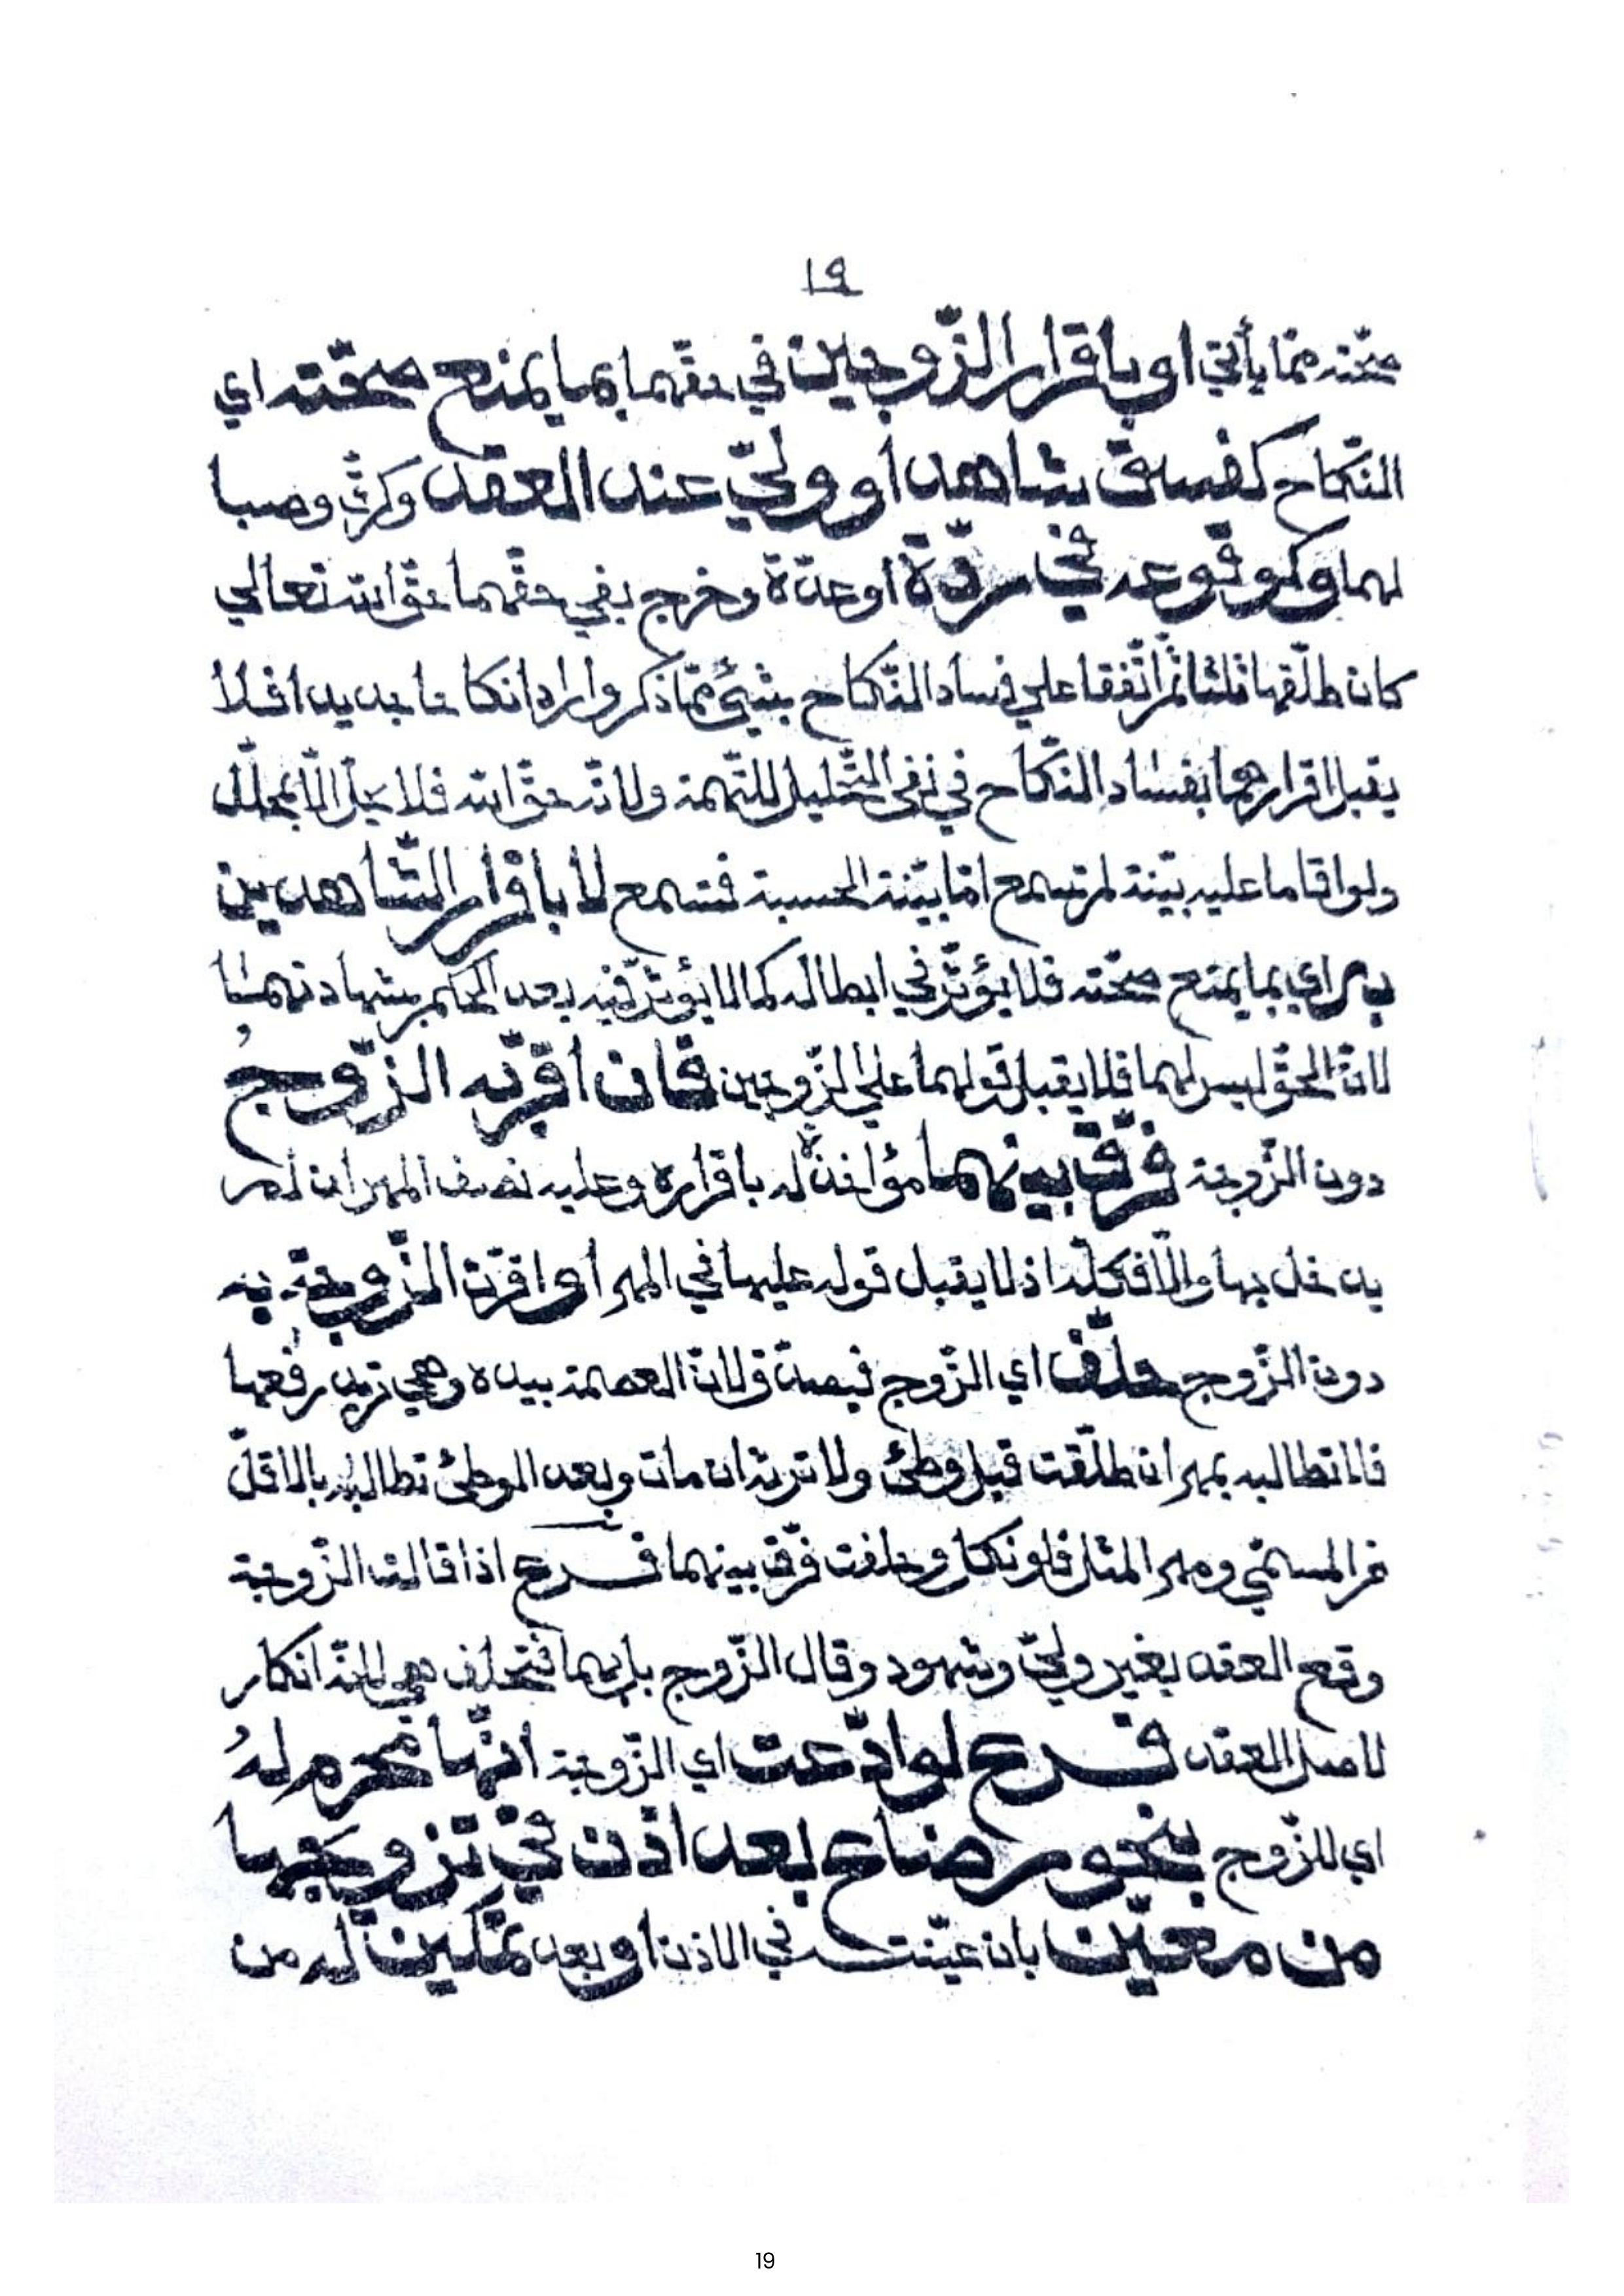 ١٩
صحّته ممّا يأتي او باقرار الزّوجين في حقّهما بما يمنع صحّته اي
النّكاح كفسق شاهد او وليّ عند العقد وكرقّ وصبا
لهما وكوقوعه في ردّة او عدّة وخرج بفي حقّهما حقّ الله تعالي
كان طلّقها ثلثا ثم اتّفقا علي فساد النّكاح بشئ ممّا ذكر وارادا نكاحا جديدا فلا
يقبل اقرارهما بفساد النّكاح في نفي التّحليل للتّهمة ولانّه حقّ الله فلا يحلّ الّا بمحلّل
ولو اقاما عليه بيّنة لم تسمع امّا بيّنة الحسبة فتسمع لا باقرار الشّاهدين
به اي بما يمنع صحّته فلا يؤثّر في ابطاله كما لا يؤثّر فيه بعد الحكم بشهادتهما
لانّ الحقّ ليس لهما فلا يقبل قولهما علي الزّوجين فان اقرّ به الزّوجُ
دون الزّوجة فرّق بينهما مؤاخذة له باقراره وعليه نصف المهر ان لم
يدخل بها والّا فكلّه اذ لا يقبل قوله عليها في المهر او اقرّت الزّوجة به
دون الزّوج حلّف اي الزّوج فيصدّق لانّ العصمة بيده وهي تريد رفعها
فلا تطالبه بمهر ان طلّقت قبل وطئ ولا ترثه ان مات وبعد الوطئ تطالبه بالاقلّ
من المسمّي ومهر المثل فلو نكل وحلفت فرّق بينهما فرع اذا قالت الزّوجة
وقع العقد بغير وليّ وشهود وقال الزّوج بل بهما فتحلف هي لانّه انكار
لاصل العقد فرع لو ادّعت اي الزّوجة انّها محرم لهُ
اي للزّوج بنحو رضاع بعد اذن في تزويجها
من معيّن بان عيّنت في الاذن او بعد تمكين له من
19